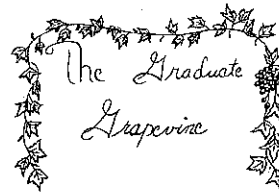 The Graduate
Grapevine